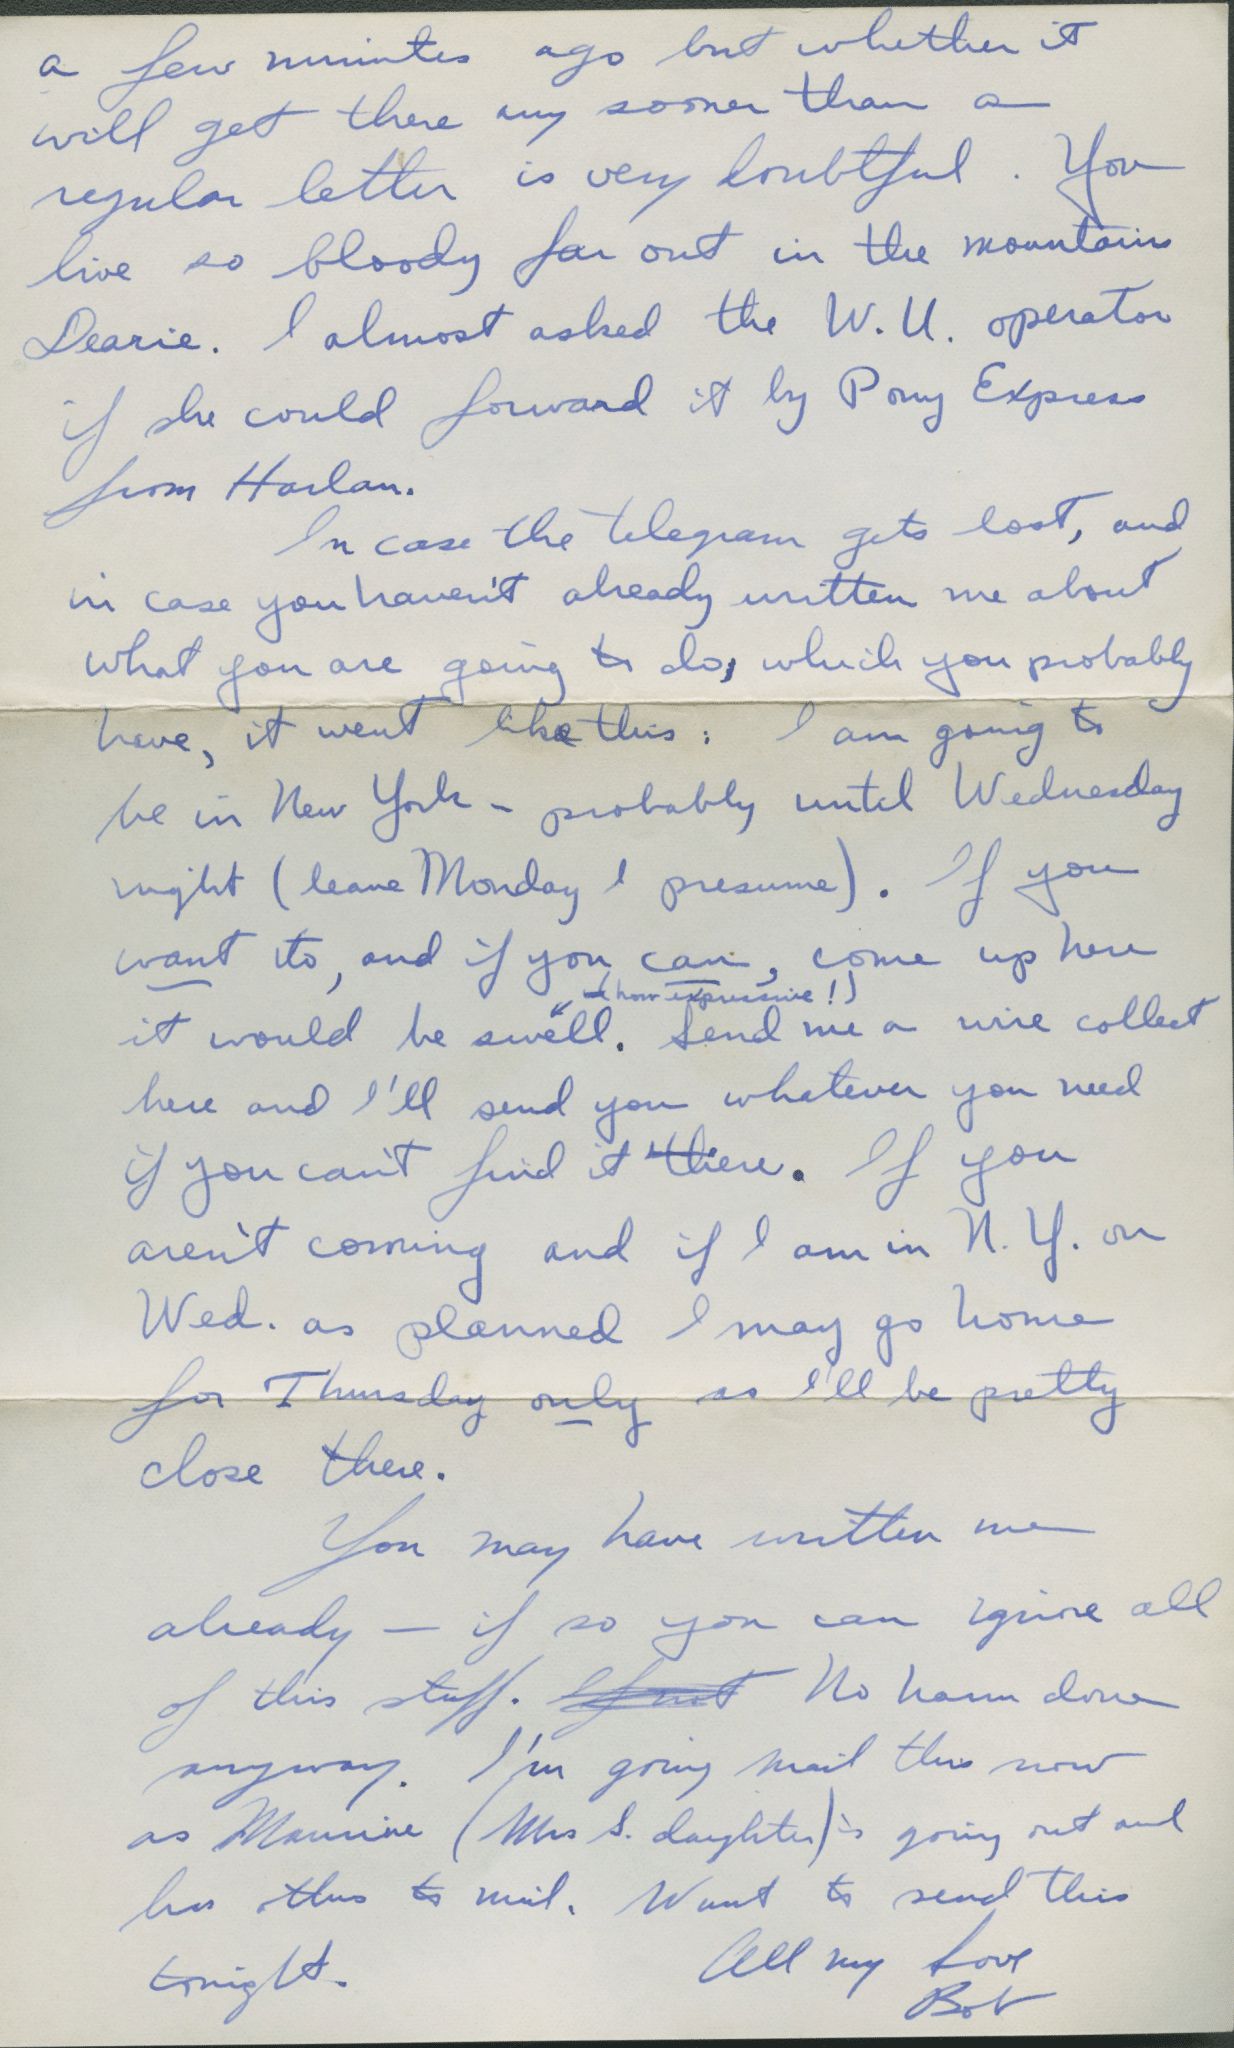 a few minutes ago but whether it
will get there any sooner than a
regular letter is very doubtful. You
live so bloody far out in the mountains
Dearie. I almost asked the W.U. operator
if she could forward it by Pony Express
from Harlan.
In case the telegram gets lost, and
in case you haven't already written me about
what you are going to do, which you probably
have, it went like this: I am going to
be in New York - probably until Wednesday
night (leave Monday I presume). If you
want to, and if you can, come up here
(how expressive!)
it would be "swell. Send me a wire collect
here and I'll send you whatever you need
if you can't find it there. If you
aren't coming and if I am in N.Y. on
Wed. as planned I may go home
for Thursday only as I'll be pretty
close there.
You may have written me
already — if so you can ignore all
of this stuff. If not No harm done
anyway. I'm going mail this now
as Maurine (Mrs S. daughter) is going out and
has this to mail. Want to send this
tonight.
All my love
Bob